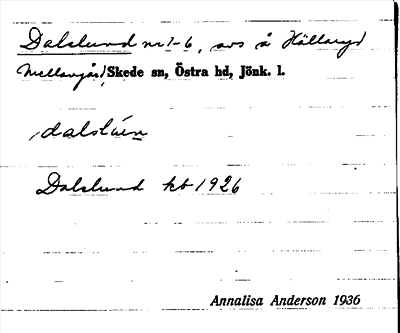 Dalslund nr 1-6, avs å Hällaryd
Mellangård, Skede sn, Östra hd, Jönk. l.
dalslúen
Dalslund kb 1926
Annalisa Anderson 1936